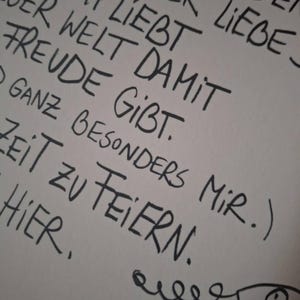 LIEBT LIEBE
DER WELT DAMIT
FREUDE GIBT.
GANZ BESONDERS MIR.)
ZEIT ZU FEIERN.
HIER.